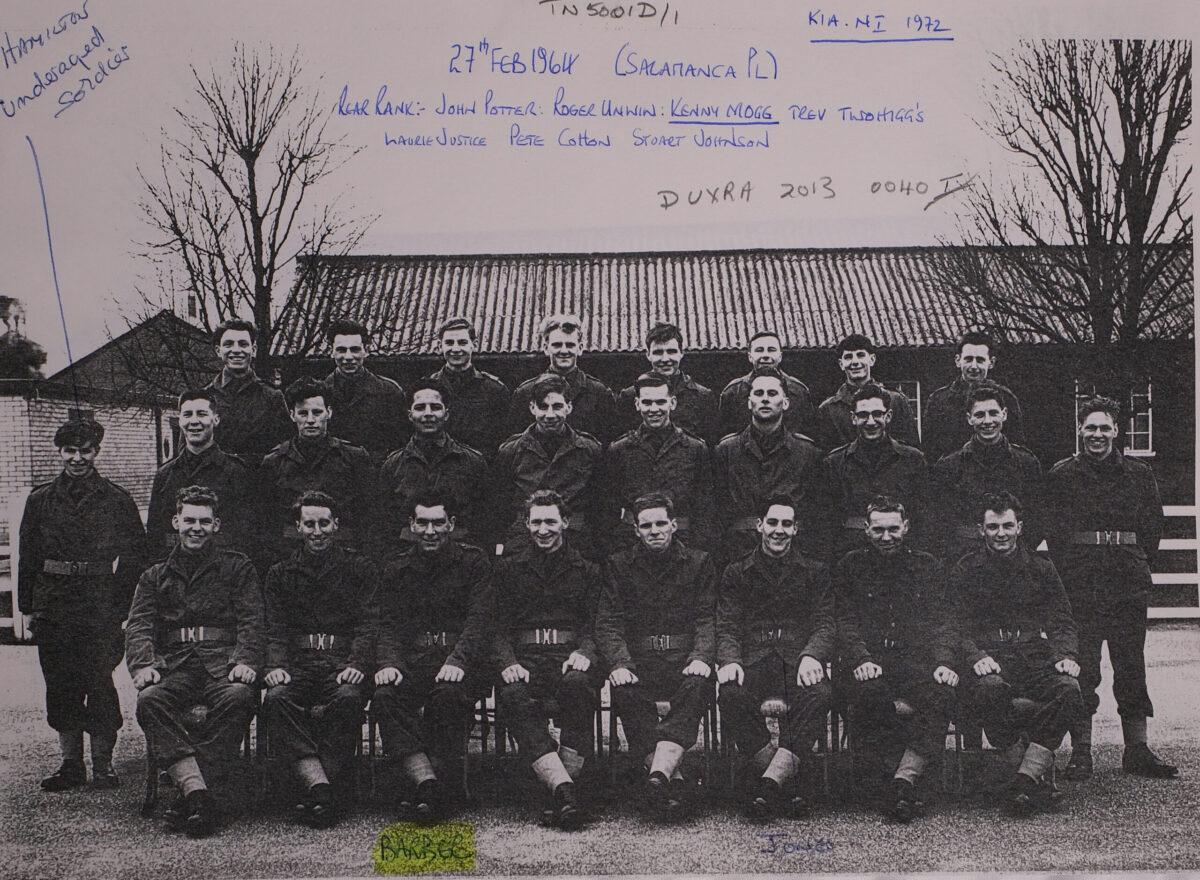 TN5001D/1
KIA. NI 1972
HAMILTON
underaged
soldier
27th FEB 1964 (SALAMANCA PL)
REAR RANK:- JOHN POTTER: ROGER UNWIN: KENNY MOGG TREV TWOHIGG'S
LAURIE JUSTICE PETE COTTON STUART JOHNSON
DUXRA 2013 0040
BARBER
Jones